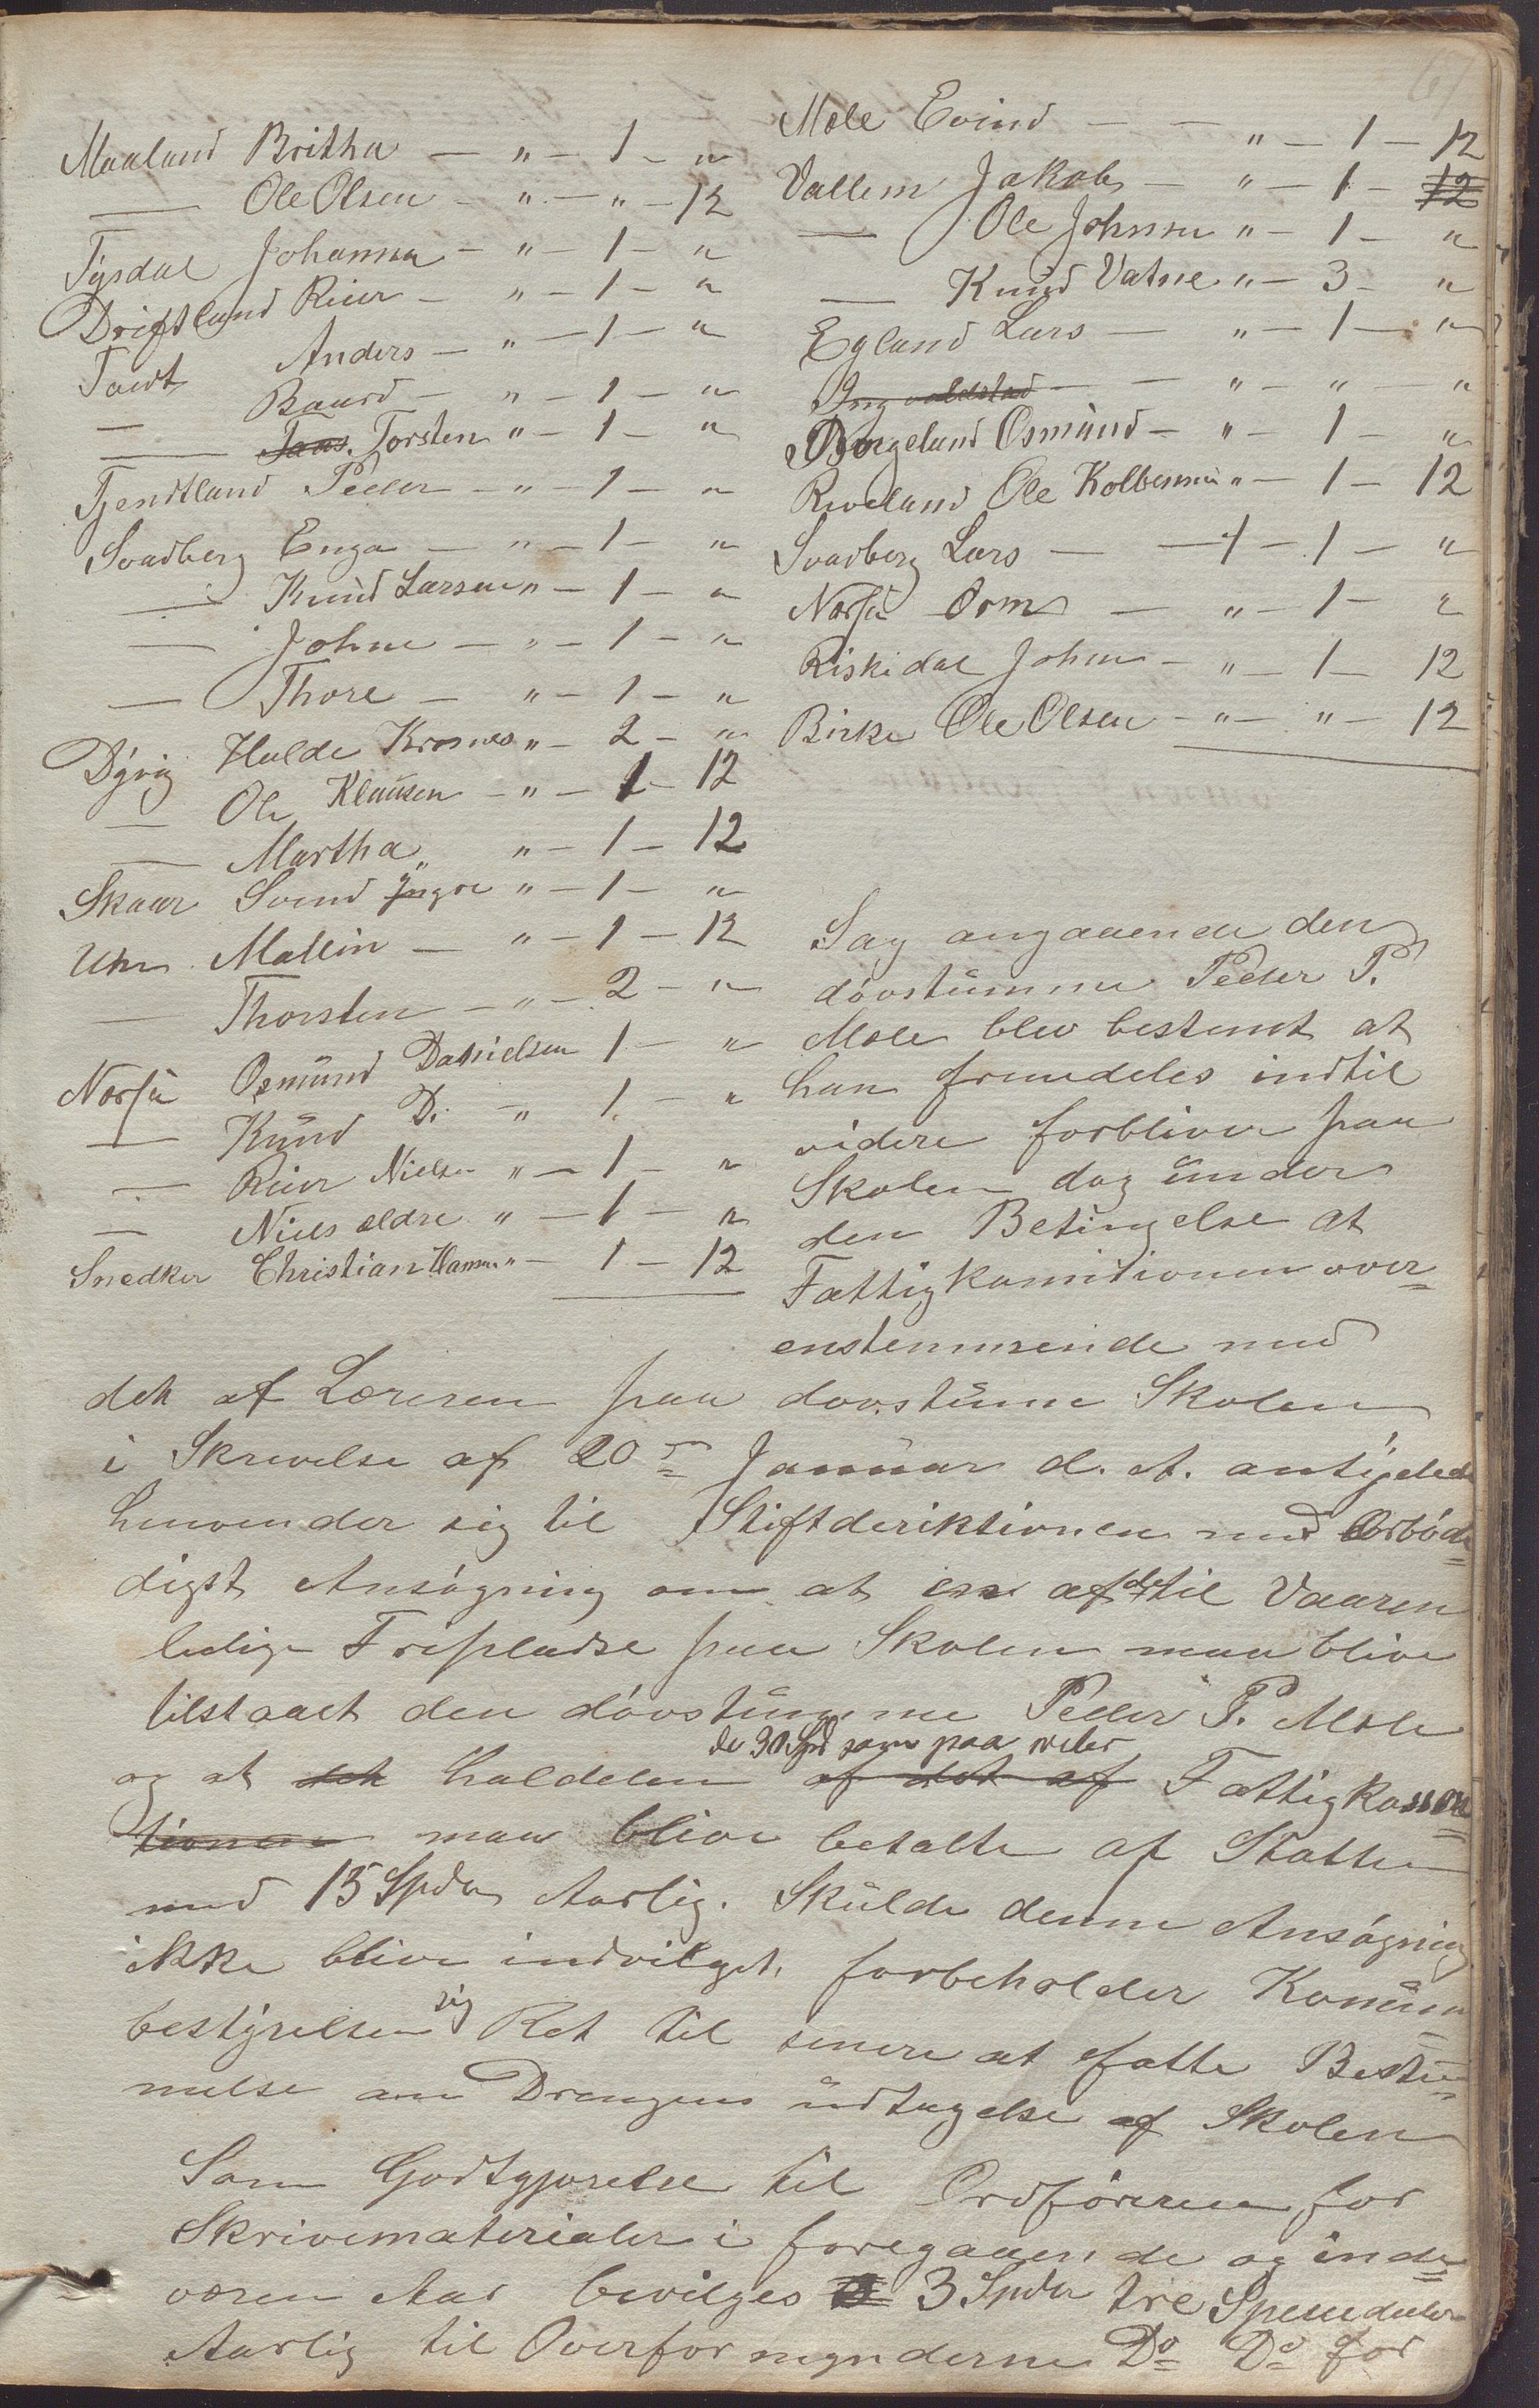 67
Maaland Britha — " — 1 — "
— Ole Olsen — " — " — 12
Tysdal Johanna — " — 1 — "
Driftland Reier — " — 1 — "
Tawt Anders — " — 1 — "
— Baard — " — 1 — "
— Taas. Torsten " — 1 — "
Tjendtland Peder — " — 1 — "
Svadberg Enga — " — 1 — "
— Knud Larsen " — 1 — "
— Johne — " — 1 — "
— Thore — " — 1 — "
Dyvig Halde Krosnes " — 2 — "
— Ole Klausen — " — 1 — 12
— Martha " " — 1 — 12
Skaar Svend Yngre " — 1 — "
Uhr Mallin — " — 1 — 12
— Thorsten — " — 2 — "
Norsu Osmund Danielsen 1 — "
— Knud D. — " 1 — "
— Reier Nielsen " — 1 — "
— Niels eldre " — 1 — "
Snedker Christian Hansen " — 1 — 12
Mæle Evind — — " — 1 — 12
Vallem Jakob — " — 1 — 12
— Ole Johnsen " — 1 — "
— Knud Vatne " — 3 — "
Egland Lars — " — 1 — "
Ingvaldstad — — " — " — "
Børgeland Osmund — " — 1 — "
Riveland Ole Kolbensen " — 1 — 12
Svadberg Lars — — 1 — 1 — "
Norsu Orm — " — 1 — "
Riskidal John — " 1 — 12
Birke Ole Olsen — " — " — 12
Sag angaaende den
dövstumme Peder P.
Mæle blev bestemt at
han fremdeles indtil
videre forbliver paa
Skolen dog under
den Betingelse at
Fattigkomitionen over-
enstemmende med
det af Læreren paa dovstumme Skolen
i Skrivelse af 20de Januar d. A. antydede
henvender sig til Stiftderiktionen med Ærbö-
digst Ansögning om at en af de til Vaaren
ledige Fripladse paa Skolen maa blive
tilstaaet den dövstumme Peder P. Mæle
de 30 Spd som paa hviler
og at det haldelen af det af Fattigkassen
tionen maa blive betalte af Statten
med 15 Spdr Aarlig. Skulde denne Ansögning
ikke blive indvilget, forbeholder Komune
bestyrelsen sig Ret til senere at fatte Bestem-
melse om Drengens udtagelse af Skolen
Som Godtgjørelse til Ordföreren for
Skrivematerialer i foregaaende og inde-
væren Aar bevilges 3 Spdr tre Speciedaler
Aarlig til Overformynderne Do Do for